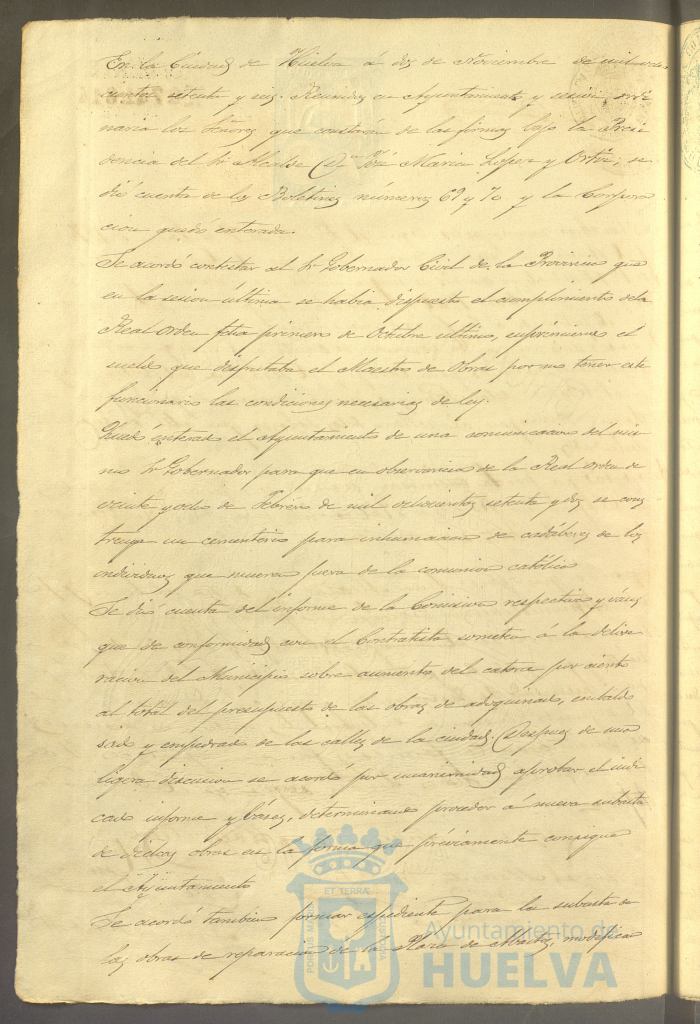 En la Ciudad de Huelva á dos de Noviembre de mil ocho-
cientos setenta y seis. Reunidos en Ayuntamiento y sesion ordi
naria los Señores que constarán de las firmas bajo la Presi
dencia del Sr Alcalde Dn José Maria Lopez y Ortiz; se
dió cuenta de los Boletines números 69 y 70 y la Corpora
cion quedó enterada.
Se acordó contestar al Sr Gobernador Civil de la Provincia que
en la sesion última se habia dispuesto el cumplimiento de la
Real orden fecha primero de Octubre último, suprimiendo el
sueldo que disfrutaba el Maestro de Obras por no tener este
funcionario las condiciones necesarias de ley.
Quedó enterado el Ayuntamiento de una comunicacion del mis
mo Sr Gobernador para que en observancia de la Real orden de
veinte y ocho de Febrero de mil ochocientos setenta y dos se cons
truya un cementerio para inhumacion de cadáberes de los
individuos que mueran fuera de la comunion católica
Se dió cuenta del informe de la Comision respectiva y bases
que de conformidad con el Contratista somete á la delibe
racion del Municipio sobre aumento del catorce por ciento
al total del presupuesto de las obras de adoquinado, embaldo
sado y empedrado de las calles de la ciudad. Despues de una
ligera discusion se acordó por unanimidad aprobar el indi
cado informe y bases, determinando proceder á nueva subasta
de dichas obras en la forma que préviamente consigne
el Ayuntamiento
Se acordó tambien formar espediente para la subasta de
las obras de reparacion de la Plaza de Abastos, modifica
ET TERRÆ
PORTUS MARIS
CUSTODIA
Ayuntamiento de
HUELVA